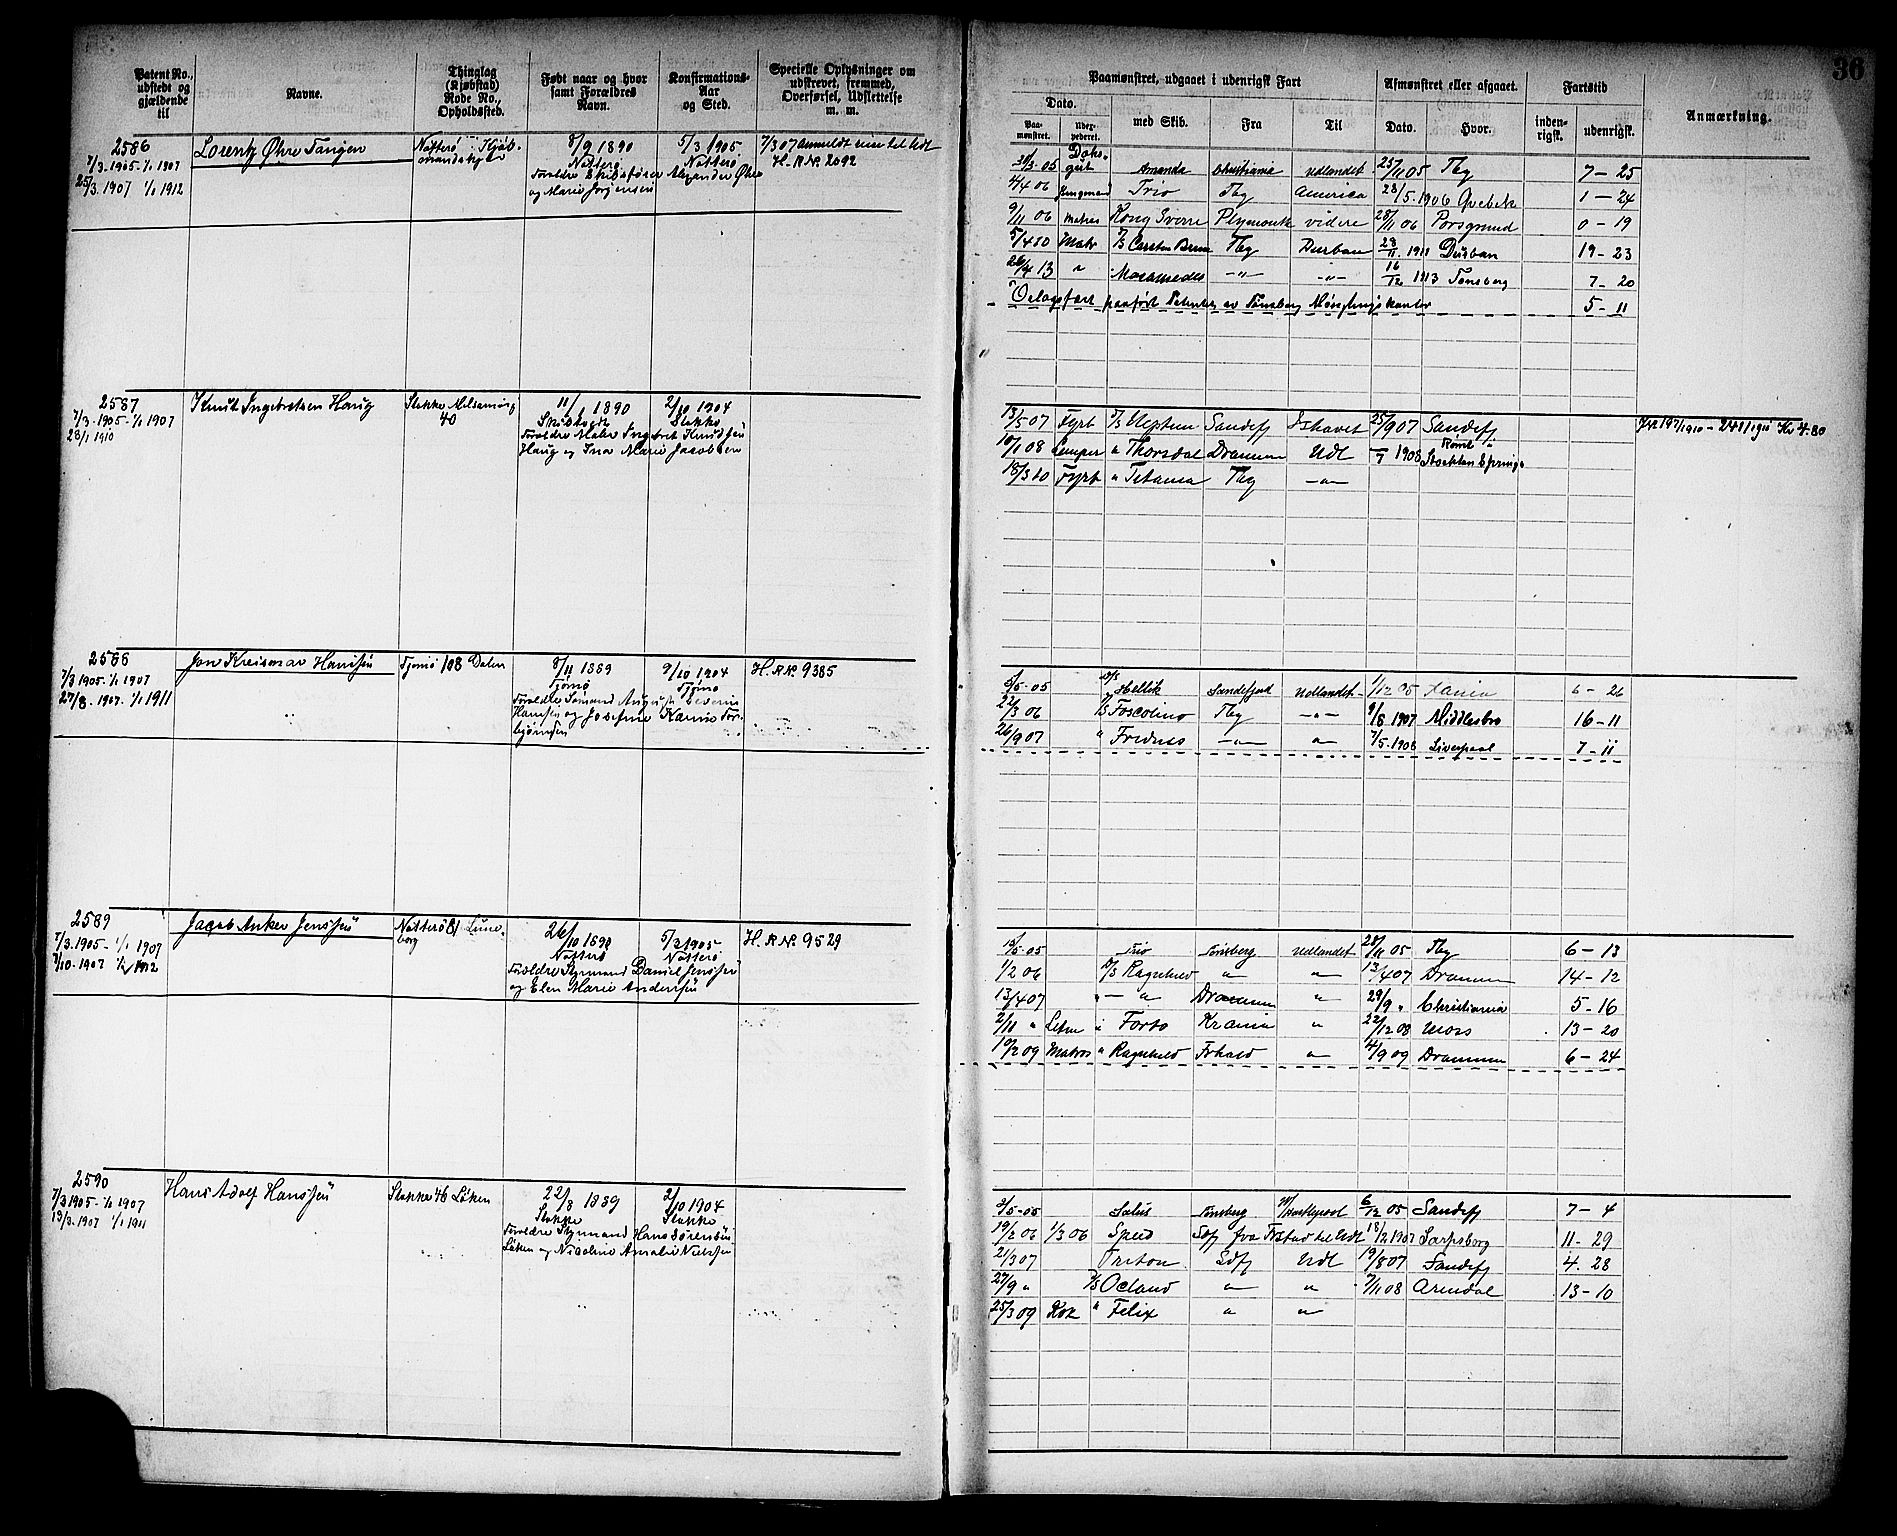 36
Patent No., udstedt og gjældende til
Navne.
Thinglag (Kjøbstad) Rode No., Opholdssted.
Født naar og hvor samt Forældres Navn.
Konfirmations-Aar og Sted.
Specielle Oplysninger om udskrevet, fremmed, Overførsel, Udslettelse m. m.
Paamønstret, udgaaet i udenrigsk Fart
Afmønstret eller afgaaet.
Fartstid
Anmærkning.
Dato.
Paa-mønstret.
med Skib.
Fra
Til
Dato.
Hvor.
inden-rigsk.
udenrigsk.
2586
7/3 1905 - 1/1 1907
25/3 1907 1/1 1912
Lorentz Øhre Tangen
Nøtterø Kjøb-
mandskjær
8/9 1890
Nøtterø
Forældre Skibsfører Alexander Øhre
og Marie Jørgensen
5/3 1905
Nøtterø
7/3 07 anmeldt
H. R. Nr. 2092
31/3 05 Dæks-
gut Amanda Christiania Udlandet 23/11 05 Tbg 7 - 25
4/4 06 Jungmand Trio Tbg America 28/5 1906 Qvebek 1 - 24
9/11 06 Matros Kong Sverre Plymouth videre 28/11 06 Porsgrund 0 - 19
5/4 10 Matr Carsten Bruun Tbg Durban 28/11 1911 Durban 19 - 23
26/4 13 " Mossamedes -"- -"- 16/12 1913 Tønsberg 7 - 20
av Tønsberg Mønstringskontor 5 - 11
2587
7/3 1905 - 1/1 1907
28/1 1910
Knut Ingebretsen Haug
Stokke Melsomvig
40
11/1 1890
Forældre Matr Ingebret Knudsen
Haug og Ina Marie Jacobsen
2/10 1904
Stokke
13/5 07 Fyrb D/S Neptun Sandefj Ishavet 25/9 07 Sandefj
10/1 08 Lemper " Thorsdal Drammen Udl 1908 Rømt Stockton Springs
18/3 10 Fyrb " Titania Tbg -"-
2588
7/3 1905 - 1/1 1907
27/8 1907 - 1/1 1911
Jon Kreismar Hanssen
Tjømø 108 Dalen
8/11 1889
Tjømø
Forældre Sømand August Severin
Hansen og Josefine Kamie Tor-
bjørnsen
9/10 1904
Tjømø
H. R. Nr. 9385
5/5 05 Hellik Sandefjord Udlandet 1/12 05 6 - 26
22/3 06 Foscolino Tbg -"- 9/8 1907 Middlesbro 16 - 11
26/9 07 " Fridnes -"- " 7/5 1908 Liverpool 7 - 11
2589
7/3 1905 - 1/1 1907
7/10 1907 1/1 1912
Jacob Anker Jenssen
Nøtterø 81 Lune-
borg
26/10 1890
Nøtterø
Forældre Styrmand Daniel Jenssen
og Elen Marie Anderssen
5/3 1905
Nøtterø
H. R. Nr. 9529
15/5 05 Trio Tønsberg Udlandet 28/11 05 Tbg 6 - 13
1/2 06 D/S Ragnhild " " 13/4 07 Drammen 14 - 12
13/4 07 " - " Drammen " 29/9 " Christiania 5 - 16
2/11 " Letm " Forto Krania " 22/12 08 Moss 13 - 20
19/2 09 Matros " Ragnhild Frhald " 4/9 09 Drammen 6 - 24
2590
7/3 1905 - 1/1 1907
19/3 1907 1/1 1911
Hans Adolf Hanssen
Stokke 46 Løken
22/8 1889
Stokke
Forældre Styrmand Hans Sørensen
Løken og Nicoline Amalie Nielsen
2/10 1904
Stokke
3/5 05 Salus Tønsberg Hartlepool 6/12 05 Sandefj 7 - 4
19/2 06 1/3 06 Speed Sdfj fra Frstad til Udl 18/2 1907 Sarpsborg 11 - 29
21/3 07 Triton Sdfj Udl 19/8 07 Sandefj 4 - 28
27/9 " D/S Ocland " " 7/11 08 Arendal 13 - 10
25/3 09 Kok " Felix " "